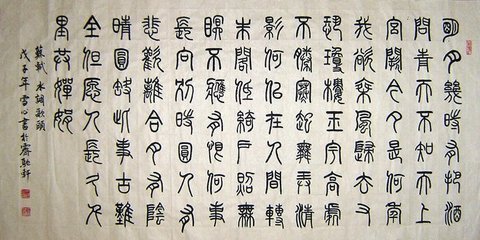 明月幾時有把酒
問青天不知天上
宮闕今夕是何年
我欲乘風歸去又
恐瓊樓玉宇高處
不勝寒起舞弄清
影何似在人間轉
朱閣低綺戶照無
眠不應有恨何事
長向別時圓人有
悲歡離合月有陰
晴圓缺此事古難
全但愿人長久千
里共嬋娟
蘇軾 水調歌頭
戊子年 雪心書於